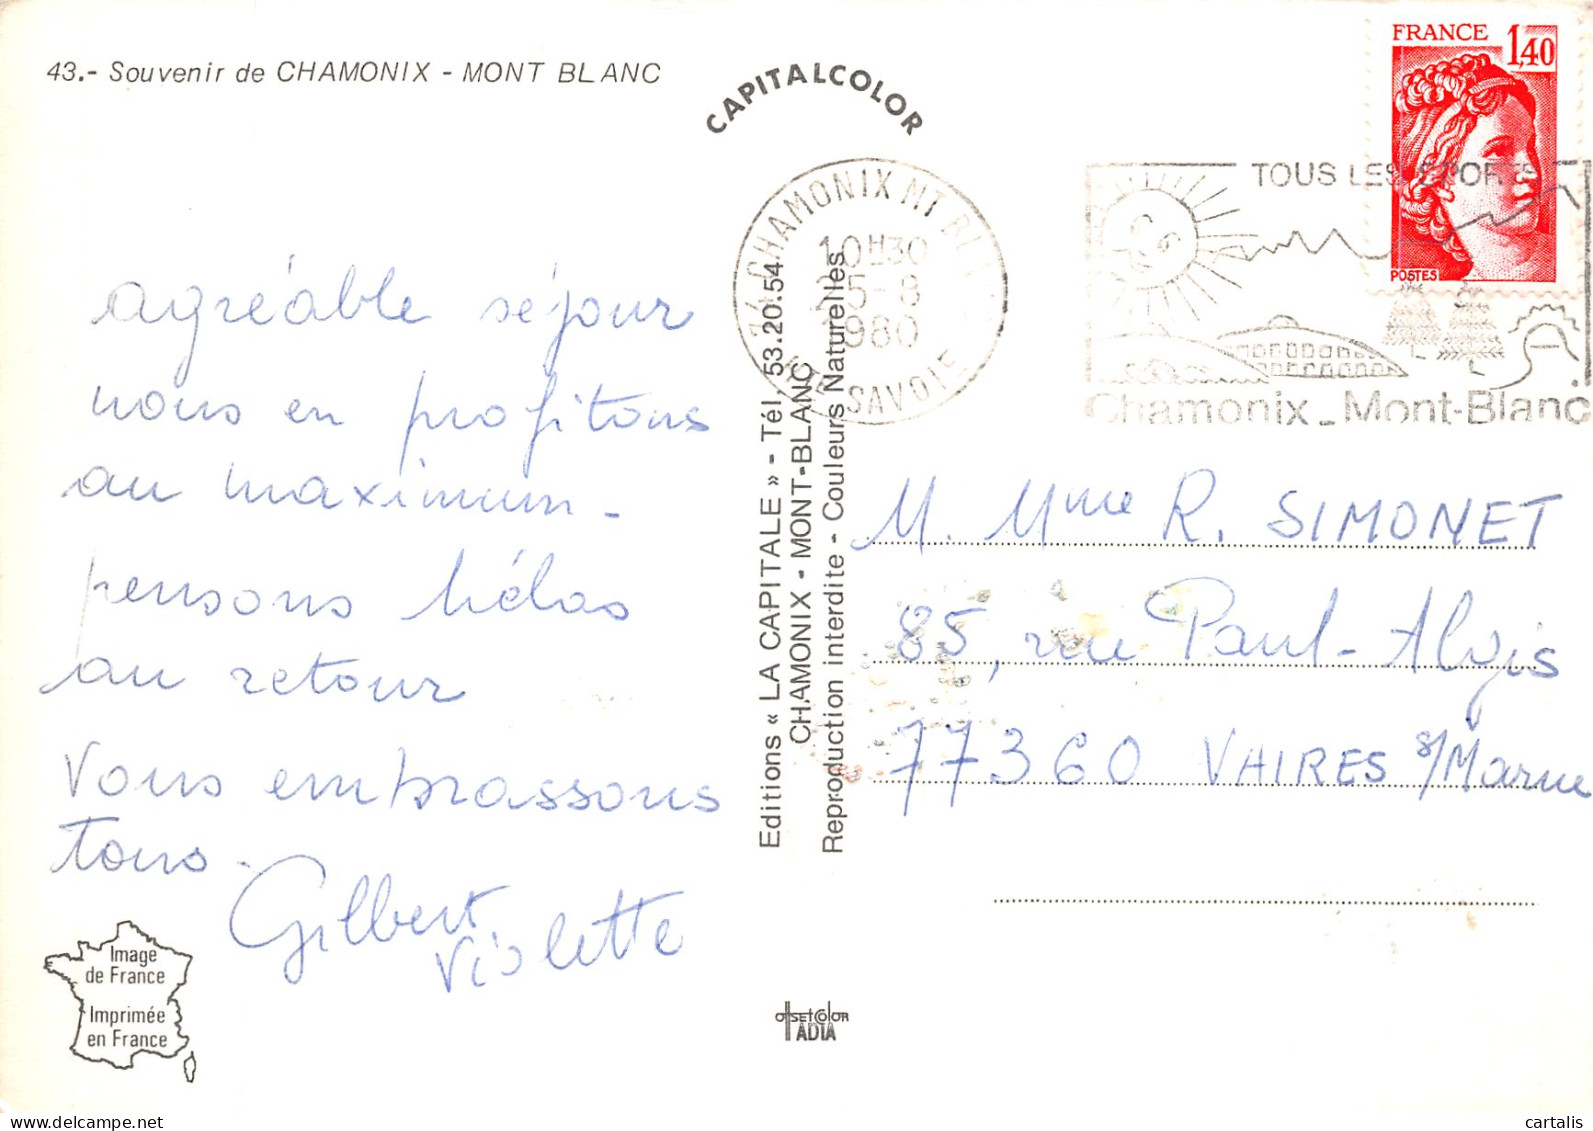 43.- Souvenir de CHAMONIX - MONT BLANC
CAPITALCOLOR
FRANCE 1,40
POSTES
74 CHAMONIX MT BL
10H30
5-8
1980
HTE SAVOIE
TOUS LES SPORTS
Chamonix_Mont-Blanc
agréable séjour
nous en profitons
au maximum -
pensons hélas
au retour
Vous embrassons
tous.
Gilbert
Violette
Editions « LA CAPITALE » - Tél. 53.20.54
CHAMONIX - MONT-BLANC
Reproduction interdite - Couleurs Naturelles
M. Mme R. SIMONET
85, rue Paul-Algis
77360 VAIRES s/Marne
Image
de France
Imprimée
en France
OffSETCOlOR
IADIA
delcampe.net
cartalis